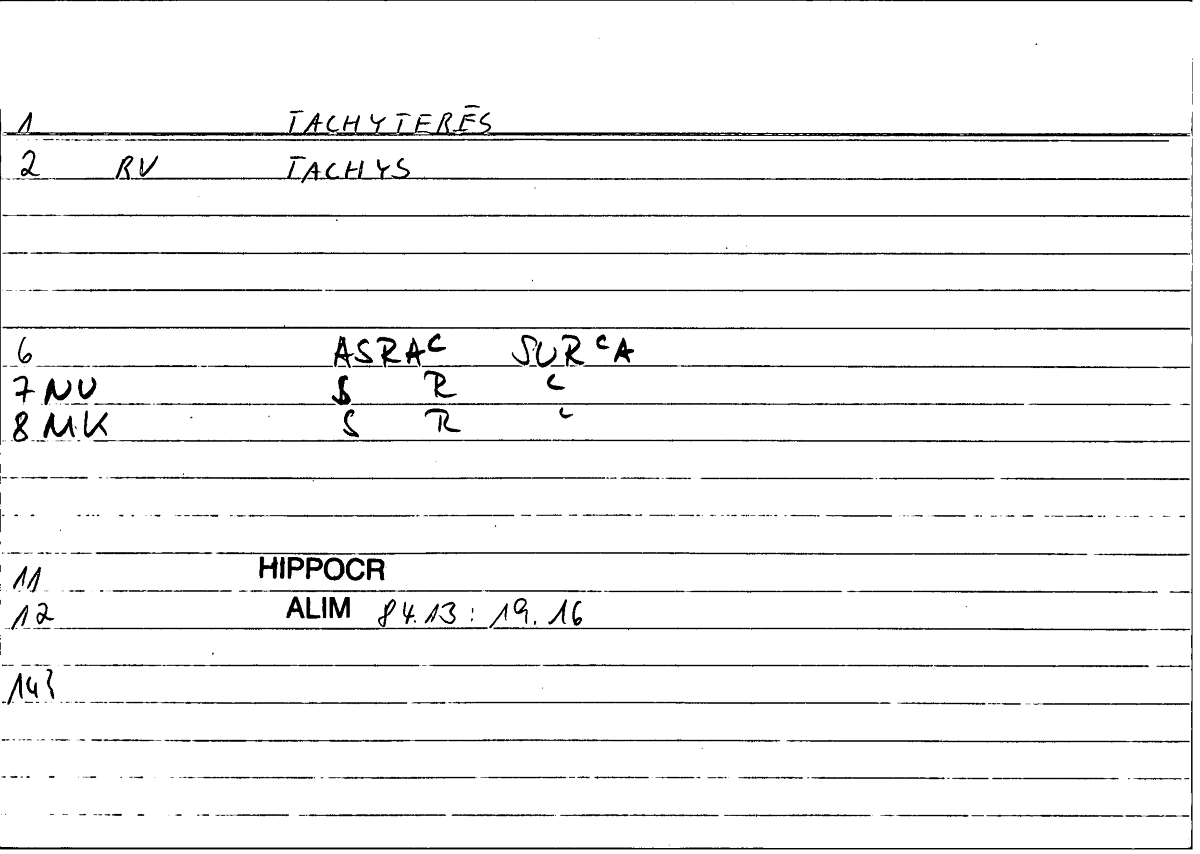 1 TACHYTERĒS
2 RV TACHYS
6 ASRAᶜ SURᶜA
7 NU S R ᶜ
8 MK S R ᶜ
11 HIPPOCR
12 ALIM 84.13 : 19.16
14}